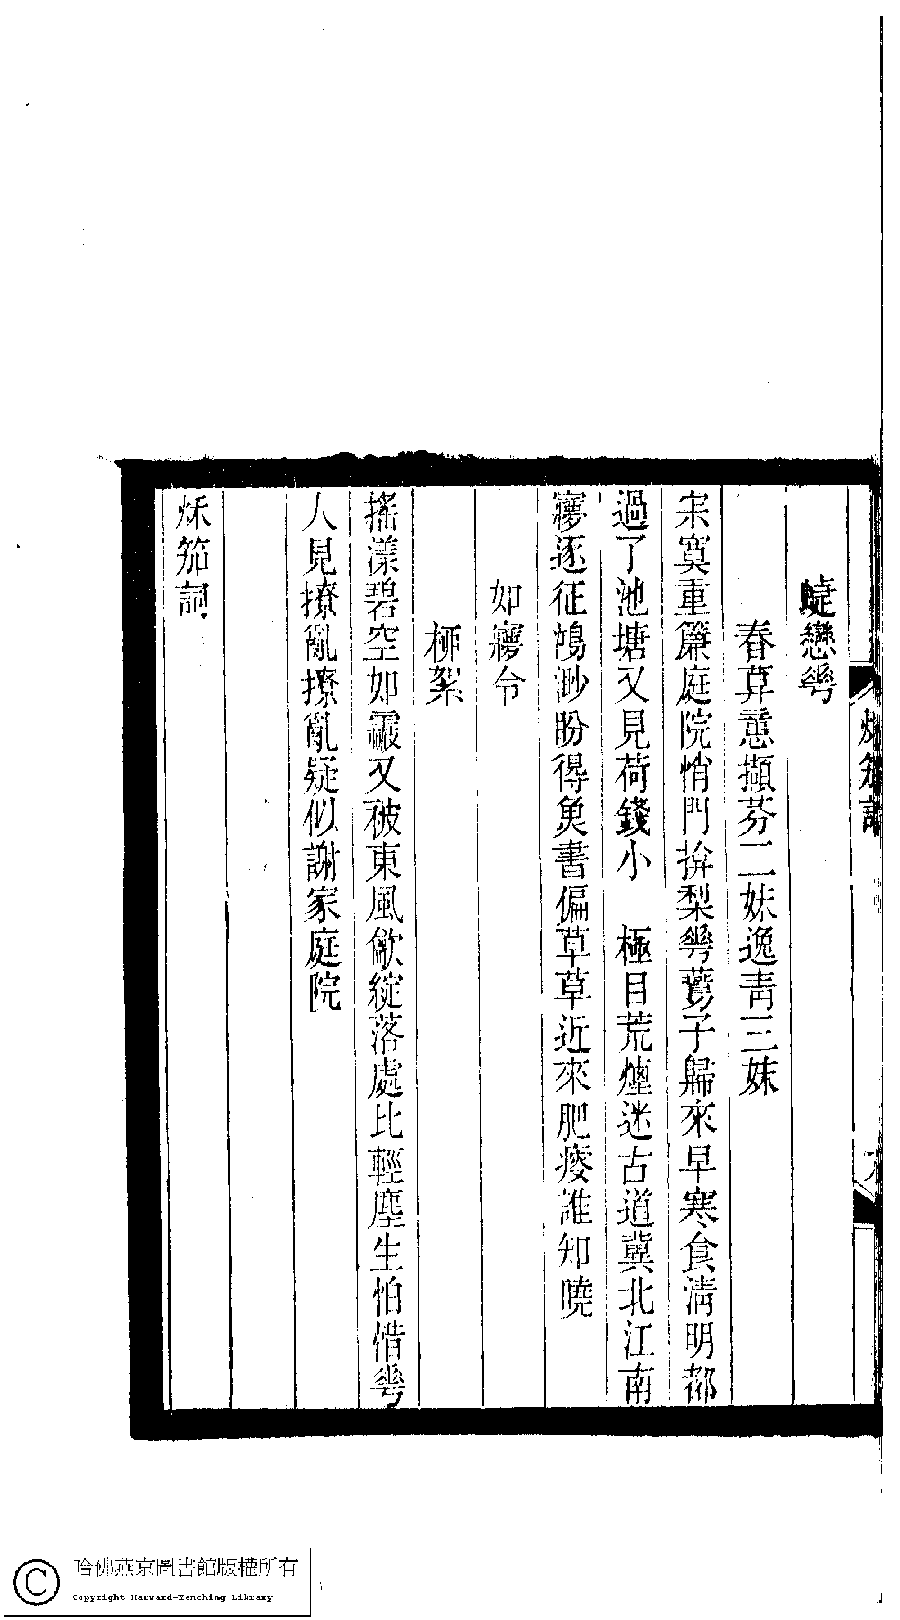 蜨戀蕐
春草憶擷芬二妹逸青三妹
宋寞重簾庭院悄門揜梨蕐鷰子歸來早寒食清明都
過了池塘又見荷錢小　極目荒煙迷古道冀北江南
夢逐征鴻渺盼得魚書偏草草近來肥瘦誰知曉
如夢令
柳絮
搖漾碧空如霰又被東風歛綻落處比輕塵生怕惜蕐
人見撩亂撩亂疑似謝家庭院
秌笳詞
秌笳詞
哈佛燕京圖書館版權所有
Copyright Harvard-Yenching Library